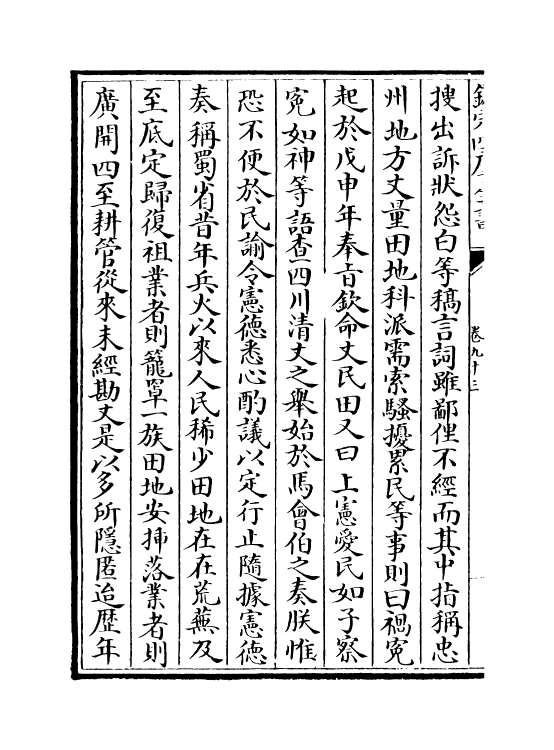 卷九十三
搜出訴狀怨白等稿言詞雖鄙俚不經而其中指稱忠
州地方丈量田地科派需索騷擾累民等事則曰禍冤
起於戊申年奉旨欽命丈民田又曰上憲愛民如子察
冤如神等語查四川清丈之舉始於馬會伯之奏朕惟
恐不便於民諭令憲德悉心酌議以定行止隨據憲德
奏稱蜀省昔年兵火以來人民稀少田地在在荒蕪及
至底定歸復祖業者則籠罩一族田地安揷落業者則
廣開四至耕管從來未經勘丈是以多所隱匿迨歴年